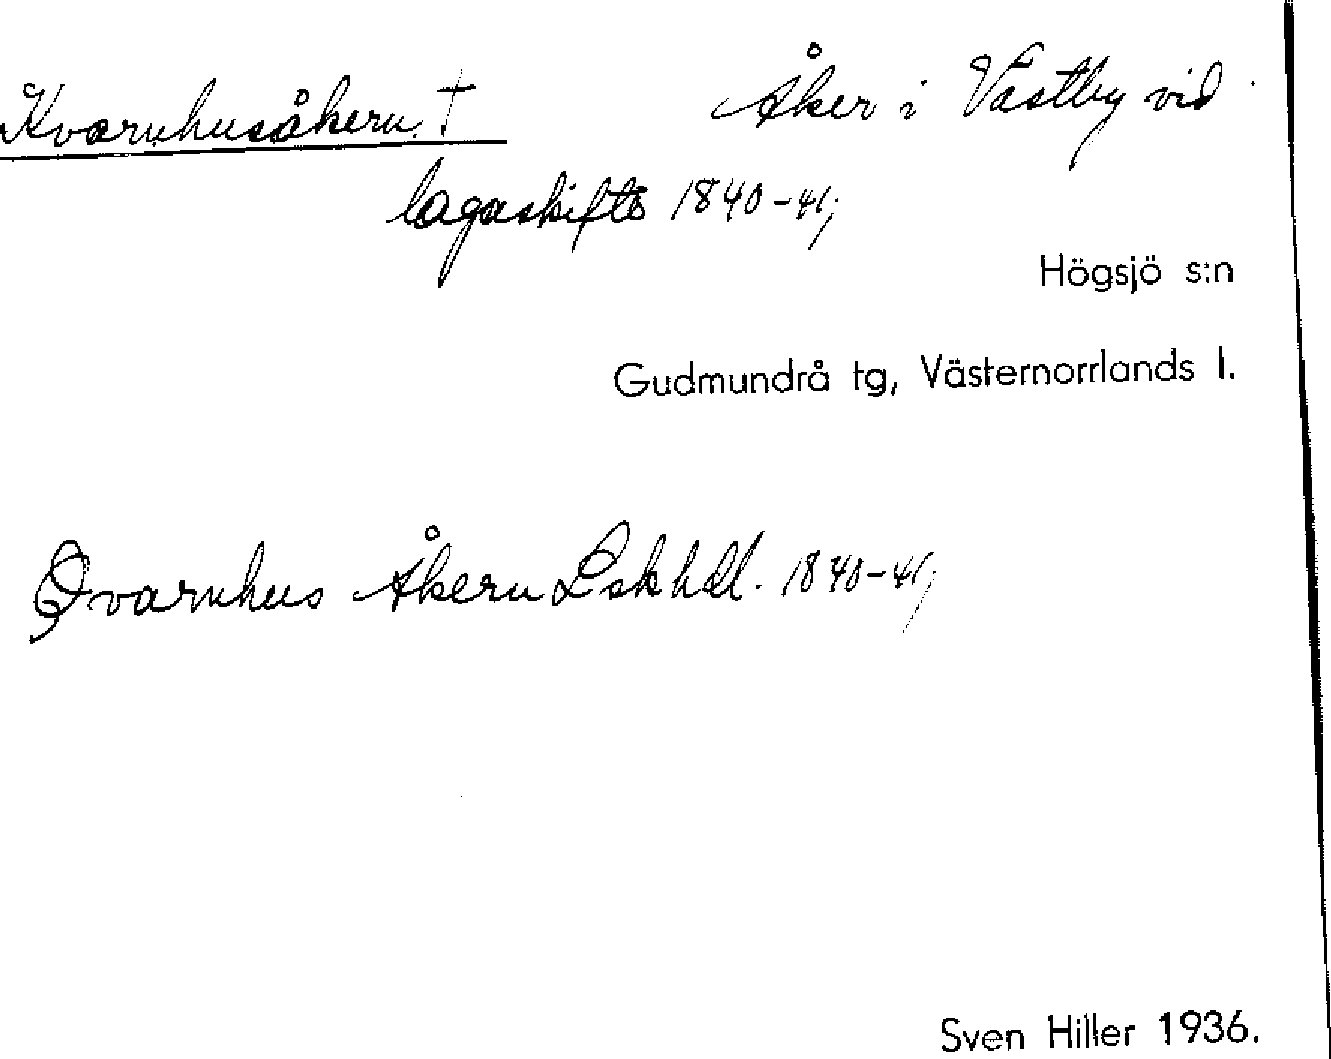 Kvarnhusåkern † Åker i Västby vid
lagaskifte 1840-41;
Högsjö s:n
Gudmundrå tg, Västernorrlands l.
Qvarnhus Åkern Lskhdl. 1840-41;
Sven Hiller 1936.